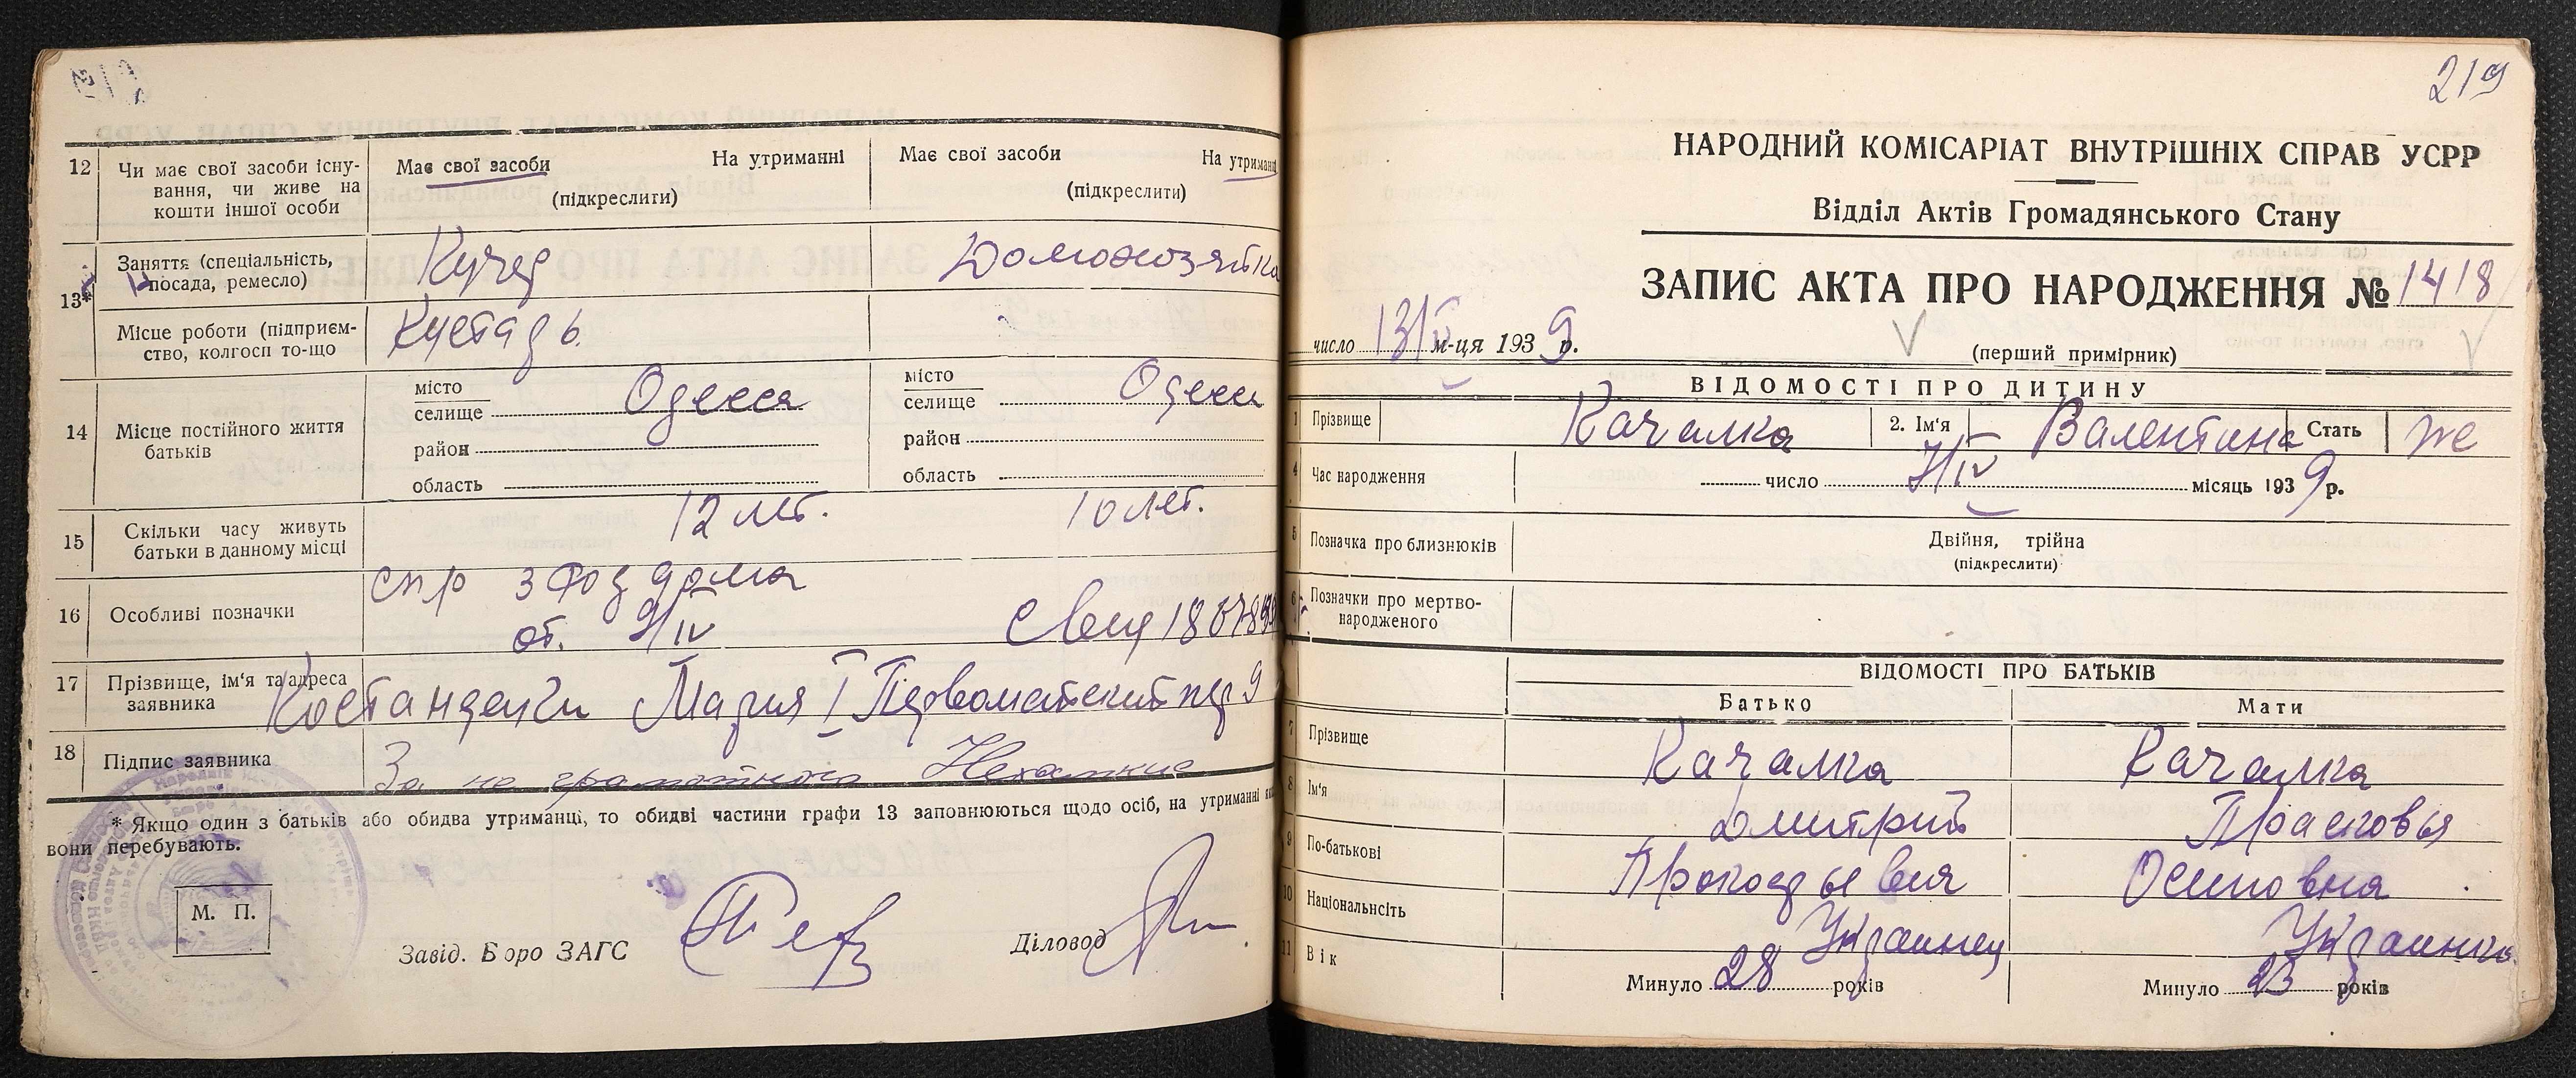 12
Чи має свої засоби існу-
вання, чи живе на
кошти іншої особи
Має свої засоби На утриманні
(підкреслити)
Має свої засоби На утриманні
(підкреслити)
13*
Заняття (спеціальність,
посада, ремесло)
Кучер
Домохозяйка
Місце роботи (підприєм-
ство, колгосп то-що
Кустарь
14
Місце постійного життя
батьків
місто
селище Одесса
район
область
місто
селище Одесса
район
область
15
Скільки часу живуть
батьки в данному місці
12 лет.
10 лет.
16
Особливі позначки
спр 3 род дома
от. 9/IV
17
Прізвище, ім'я та адреса
заявника
Мария I Первомайский пер 9
18
Підпис заявника
За не грамотного
* Якщо один з батьків або обидва утриманці, то обидві частини графи 13 заповнюються щодо осіб, на утриманні яких
вони перебувають.
М. П.
Завід. Бюро ЗАГС
Діловод
219
НАРОДНИЙ КОМІСАРІАТ ВНУТРІШНІХ СПРАВ УСРР
Відділ Актів Громадянського Стану
ЗАПИС АКТА ПРО НАРОДЖЕННЯ № 1418
число 13/IV м-ця 1939 р.
(перший примірник)
ВІДОМОСТІ ПРО ДИТИНУ
1 Прізвище Качалка 2. Ім'я Валентина Стать же
4 Час народження число 7/IV місяць 1939 р.
5 Позначка про близнюків Двійня, трійна
(підкреслити)
6 Позначки про мертво-
народженого
ВІДОМОСТІ ПРО БАТЬКІВ
Батько Мати
7 Прізвище Качалка Качалка
8 Ім'я Дмитрий Прасковья
9 По-батькові Осиповна
10 Національнсіть Украинец Украинка
11 Вік Минуло 28 років Минуло 23 років